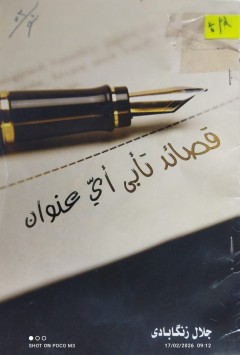 قصائد تأبى أيّ عنوان
جلال زنگابادي
SHOT ON POCO M3
17/02/2026 09:12